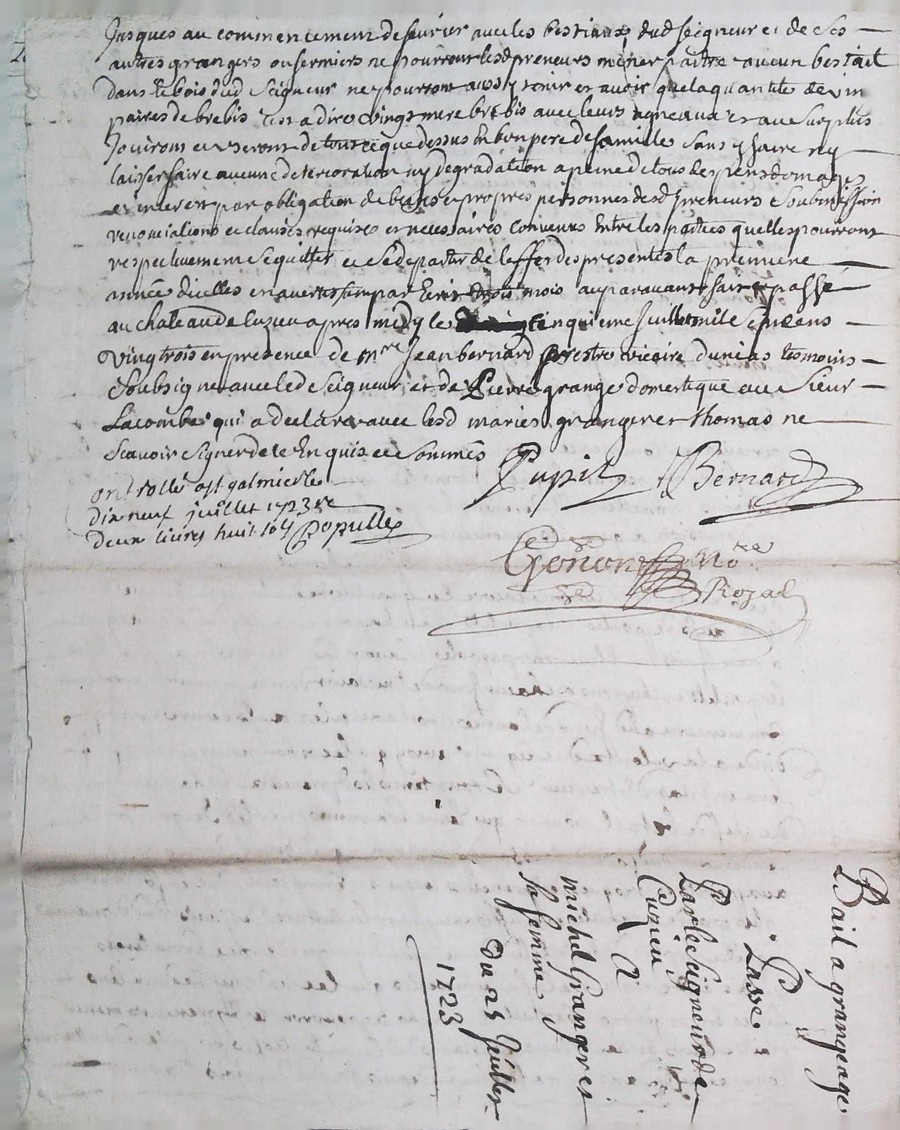 Jusques au commencement de fevrier avec les bestiaux dud seigneur et de ses
autres grangers ou fermiers ne pourront lesd preneurs mener paitre aucun bestail
dans le bois dud Seigneur ne pourront aussy tenir et avoir que la quantité de vin
paires de brebis c'est a dire vingt mere brebis avec leurs agneaux et au surplus
Jouiront et useront de tout ce que dessus en bon pere de famille sans y faire ny
laisser faire aucune deterioration ny degradation a peine de tous despens domages
et interest par obligation de biens et propres personnes desd preneurs Soubmission
renonciations et clauses requises et necessaires convenus entre les parties quelles pourront
respectivement se quitter et se departir de leffet des presentes la premiere
année dicelles en avertissant par Ecrit trois mois auparavant fait et passé
au chateau de Cuzieu apres midy le cinquieme Juillet mil sept cens
vingt trois en presence de mre Jean bernard prestre vicaire dunias temoins
Soubsigne avec led Seigneur et de Pierre grange domestique au Sieur
Lacombe qui a declaré avec lesd maries granger et thomas ne
Scavoir Signer de ce Enquis et Sommés
Pupil Bernard
ontrollé a st galmier le
dix neuf juillet 1723 Re
deux livres huit sols Populle
Gonon nore
Royal
Bail a grangeage
Passé
Par le Seigneur de
Cuzieu
A
michel Granger et
Sa femme
du 25 Juillet
1723